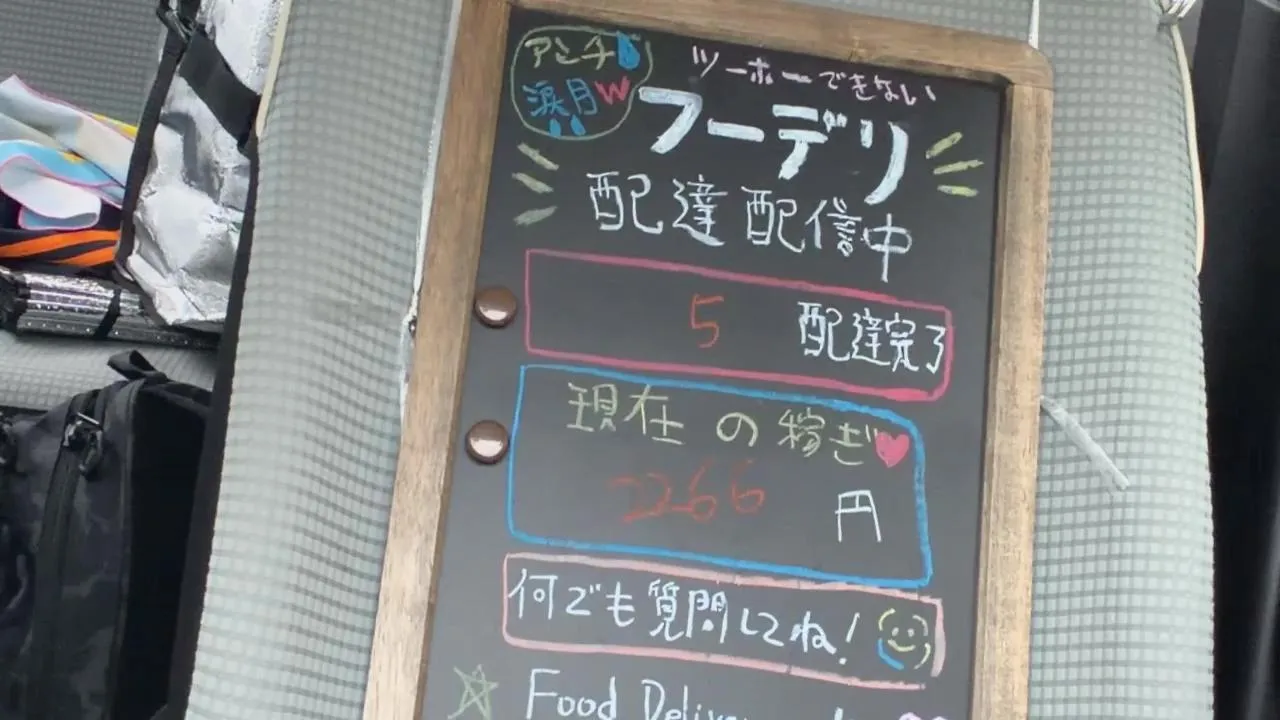 アンチ
涙月w
ツーホーできない
フーデリ
配達配信中
5 配達完了
現在の稼ぎ
2266円
何でも質問してね!
Food